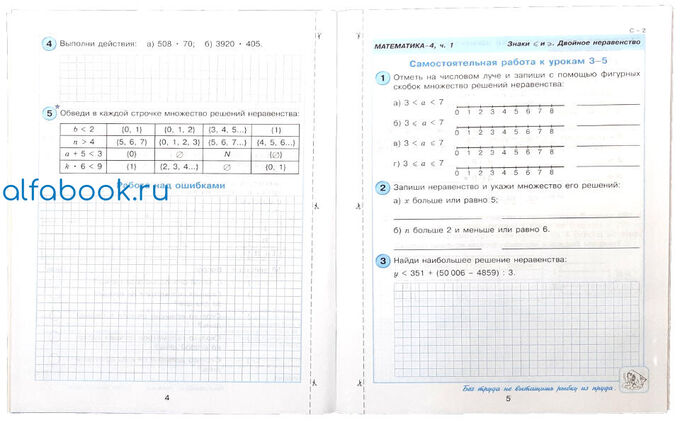 4 Выполни действия: а) 508 · 70; б) 3920 · 405.
5* Обведи в каждой строчке множество решений неравенства:
b < 2 {0, 1} {0, 1, 2} {3, 4, 5...} {1}
n > 4 {5, 6, 7} {0, 1, 2, 3} {5, 6, 7...} {4, 5, 6...}
a + 5 < 3 {0} ∅ N {∅}
k · 6 < 9 {1} {2, 3, 4...} ∅ {0, 1}
alfabook.ru
Работа над ошибками
4
С – 2
МАТЕМАТИКА–4, ч. 1 Знаки ⩽ и ⩾. Двойное неравенство
Самостоятельная работа к урокам 3–5
1 Отметь на числовом луче и запиши с помощью фигурных
скобок множество решений неравенства:
а) 3 < a < 7
0 1 2 3 4 5 6 7 8
б) 3 ⩽ a < 7
0 1 2 3 4 5 6 7 8
в) 3 < a ⩽ 7
0 1 2 3 4 5 6 7 8
г) 3 ⩽ a ⩽ 7
0 1 2 3 4 5 6 7 8
2 Запиши неравенство и укажи множество его решений:
а) x больше или равно 5;
б) n больше 2 и меньше или равно 6.
3 Найди наибольшее решение неравенства:
y < 351 + (50 006 – 4859) : 3.
Без труда не вытащишь рыбку из пруда.
5